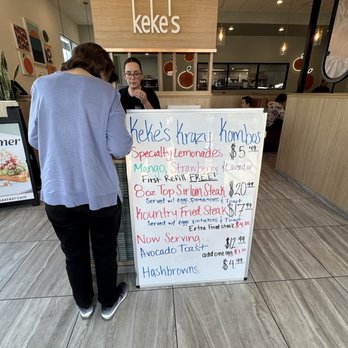 keke's
Keke's Krazy Kombos
Specialty Lemonades $5.49
Mango, Strawberry, Lavender
First Refill FREE!
8oz Top Sirloin Steak $20.49
Served w/ eggs, potatoes & Toast
Kountry Fried Steak $17.49
Served w/ eggs, potatoes & Toast
Extra Fried Steak
Now Serving $12.99
Avocado Toast add one egg
Hashbrowns $4.99